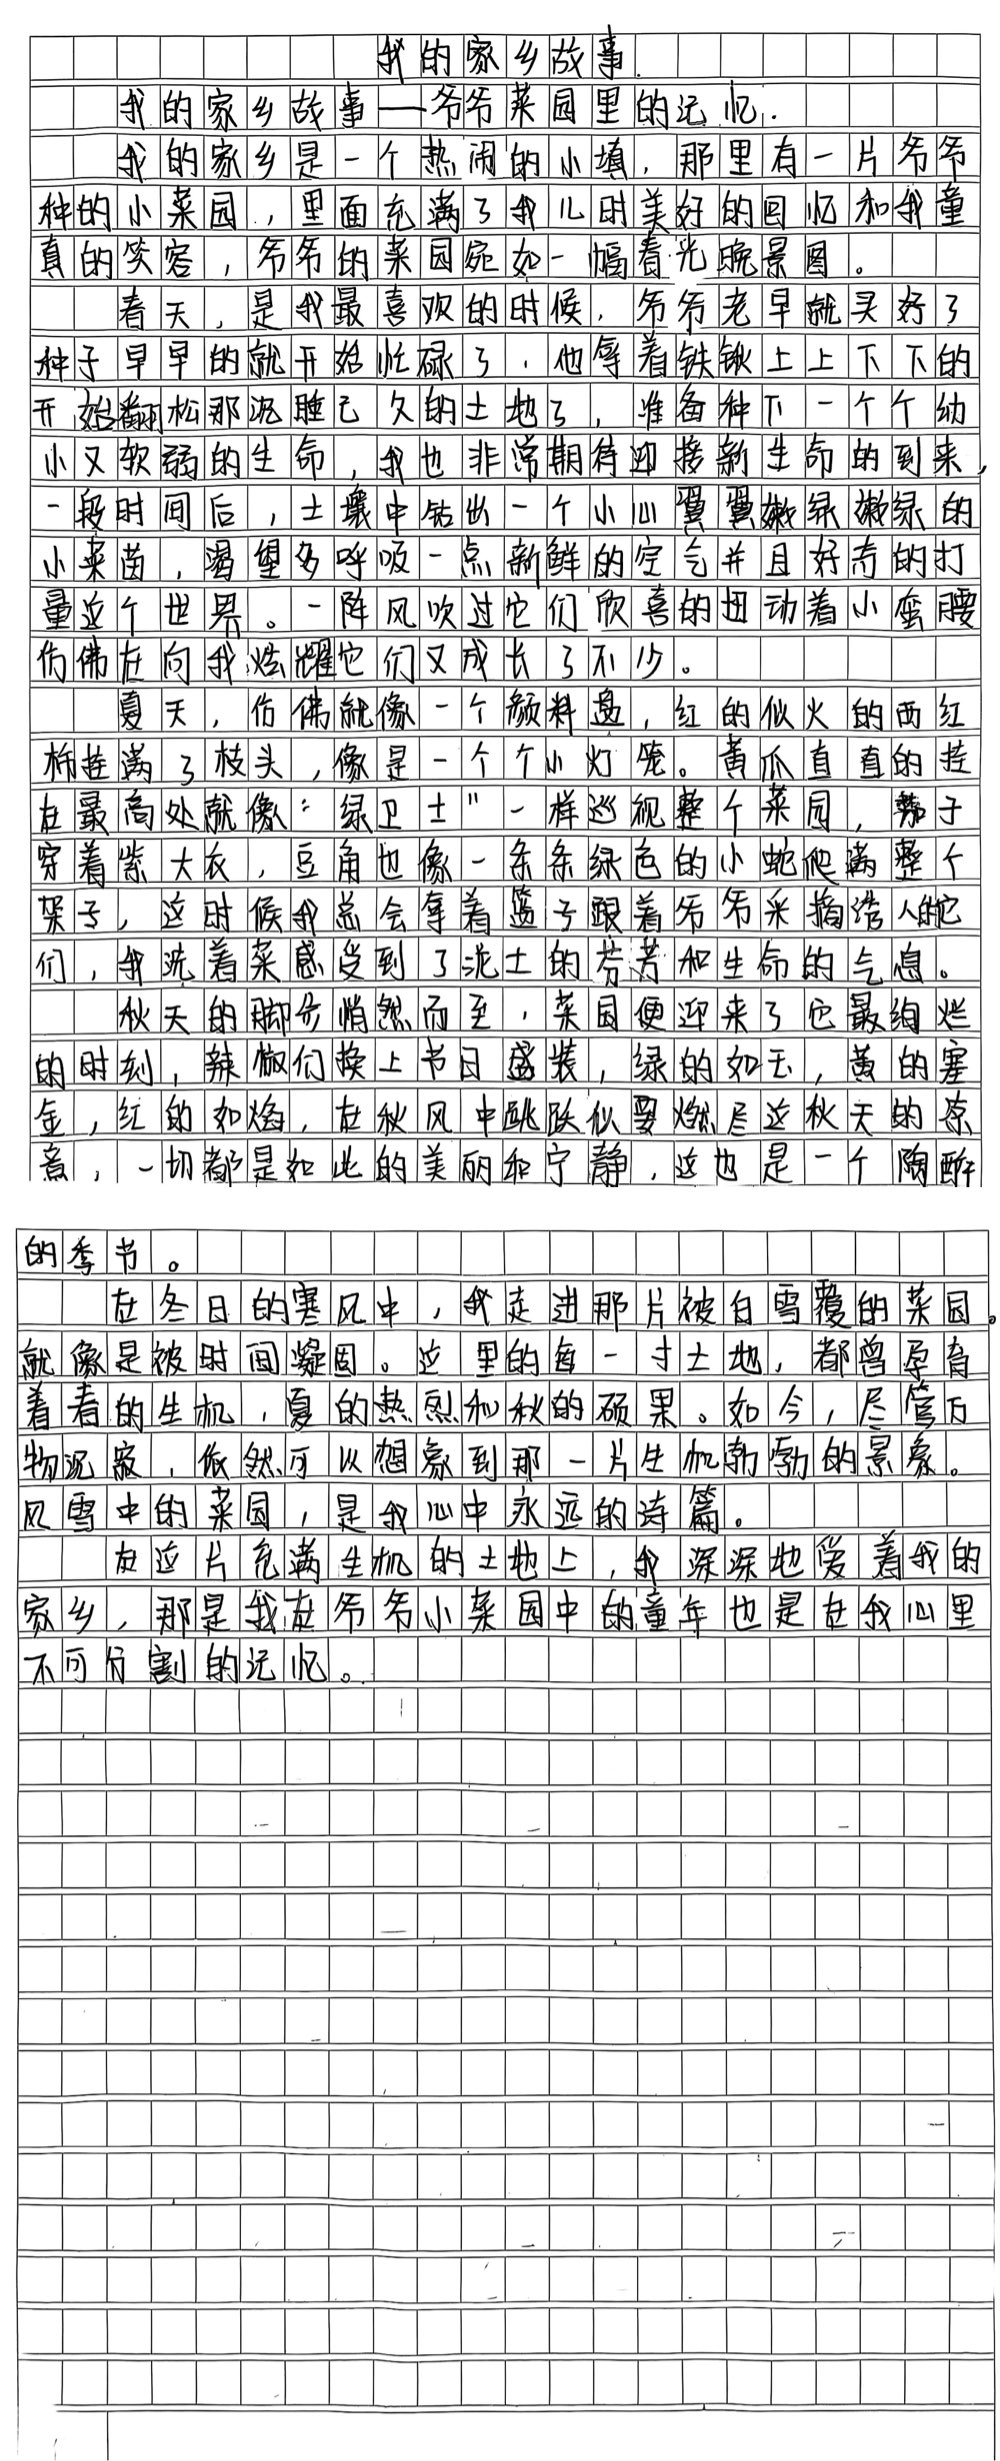 我的家乡故事.
我的家乡故事——爷爷菜园里的记忆.
我的家乡是一个热闹的小填，那里有一片爷爷
种的小菜园，里面充满了我儿时美好的回忆和我童
真的笑容，爷爷的菜园宛如一幅春光晚景图。
春天，是我最喜欢的时候，爷爷老早就买好了
种子早早的就开始忙碌了，他拿着铁锹上上下下的
开始翻松那沉睡已久的土地了，准备种下一个个幼
小又软弱的生命，我也非常期待迎接新生命的到来，
一段时间后，土壤中钻出一个小心翼翼嫩绿嫩绿的
小菜苗，渴望多呼吸一点新鲜的空气并且好奇的打
量这个世界。一阵风吹过它们欣喜的扭动着小蛮腰
仿佛在向我炫耀它们又成长了不少。
夏天，仿佛就像一个颜料盘，红的似火的西红
柿挂满了枝头，像是一个个小灯笼。黄瓜直直的挂
在最高处就像“绿卫士”一样巡视整个菜园，茄子
穿着紫大衣，豆角也像一条条绿色的小蛇爬满整个
架子，这时候我总会拿着篮子跟着爷爷采摘诱人的它
们，我洗着菜感受到了泥土的芬芳和生命的气息。
秋天的脚步悄然而至，菜园便迎来了它最绚烂
的时刻，辣椒们换上节日盛装，绿的如玉，黄的塞
金，红的如焰，在秋风中跳跃似要燃尽这秋天的凉
意，一切都是如此的美丽和宁静，这也是一个陶醉
的季节。
在冬日的寒风中，我走进那片被白雪覆的菜园。
就像是被时间凝固。这里的每一寸土地，都曾孕育
着春的生机，夏的热烈和秋的硕果。如今，尽管万
物沉寂，依然可以想象到那一片生机勃勃的景象。
风雪中的菜园，是我心中永远的诗篇。
在这片充满生机的土地上，我深深地爱着我的
家乡，那是我在爷爷小菜园中的童年也是在我心里
不可分割的记忆。